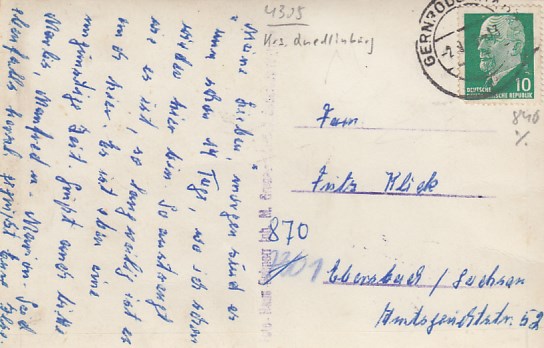 4305
Krs. Quedlinburg
GERNRODE
DEUTSCHE
DEMOKRATISCHE REPUBLIK 10
Meine Lieben, morgen sind es
nun schon 14 Tage, wo ich schon
wieder hier bin. So anstrengt
wie es ist, so langweilig ist es
auch hier. Es ist eben eine
Zeit. Grüßt auch bitte
Marlis, Manfred u. Marion. Seid
ebenfalls herzl. gegrüßt Eure
Fam.
Fritz Klick
870
1201
Ebersbach / Sachsen
Amtsgerichtstr. 52
840